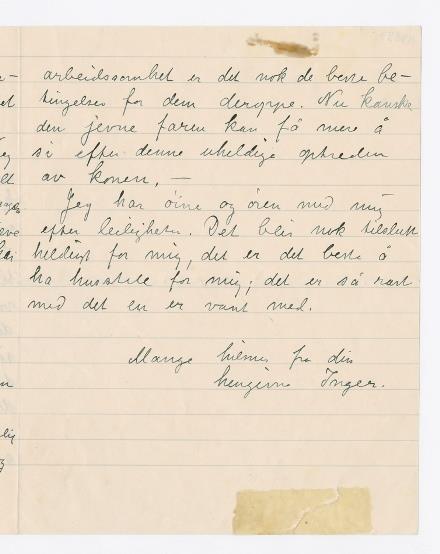 arbeidssomhet er det nok de beste be-
tingelser for dem deroppe. Nu kanske
den jevne faren kan få mere å
si efter denne uheldige optreden
av konen. —
Jeg har öine og ören med mig
efter leiligheter. Det blir nok tilslutt
heldigst for mig, det er det beste å
ha husstell for mig; det er så rart
med det en er vant med.
Mange hilsner fra din
hengivne Inger.